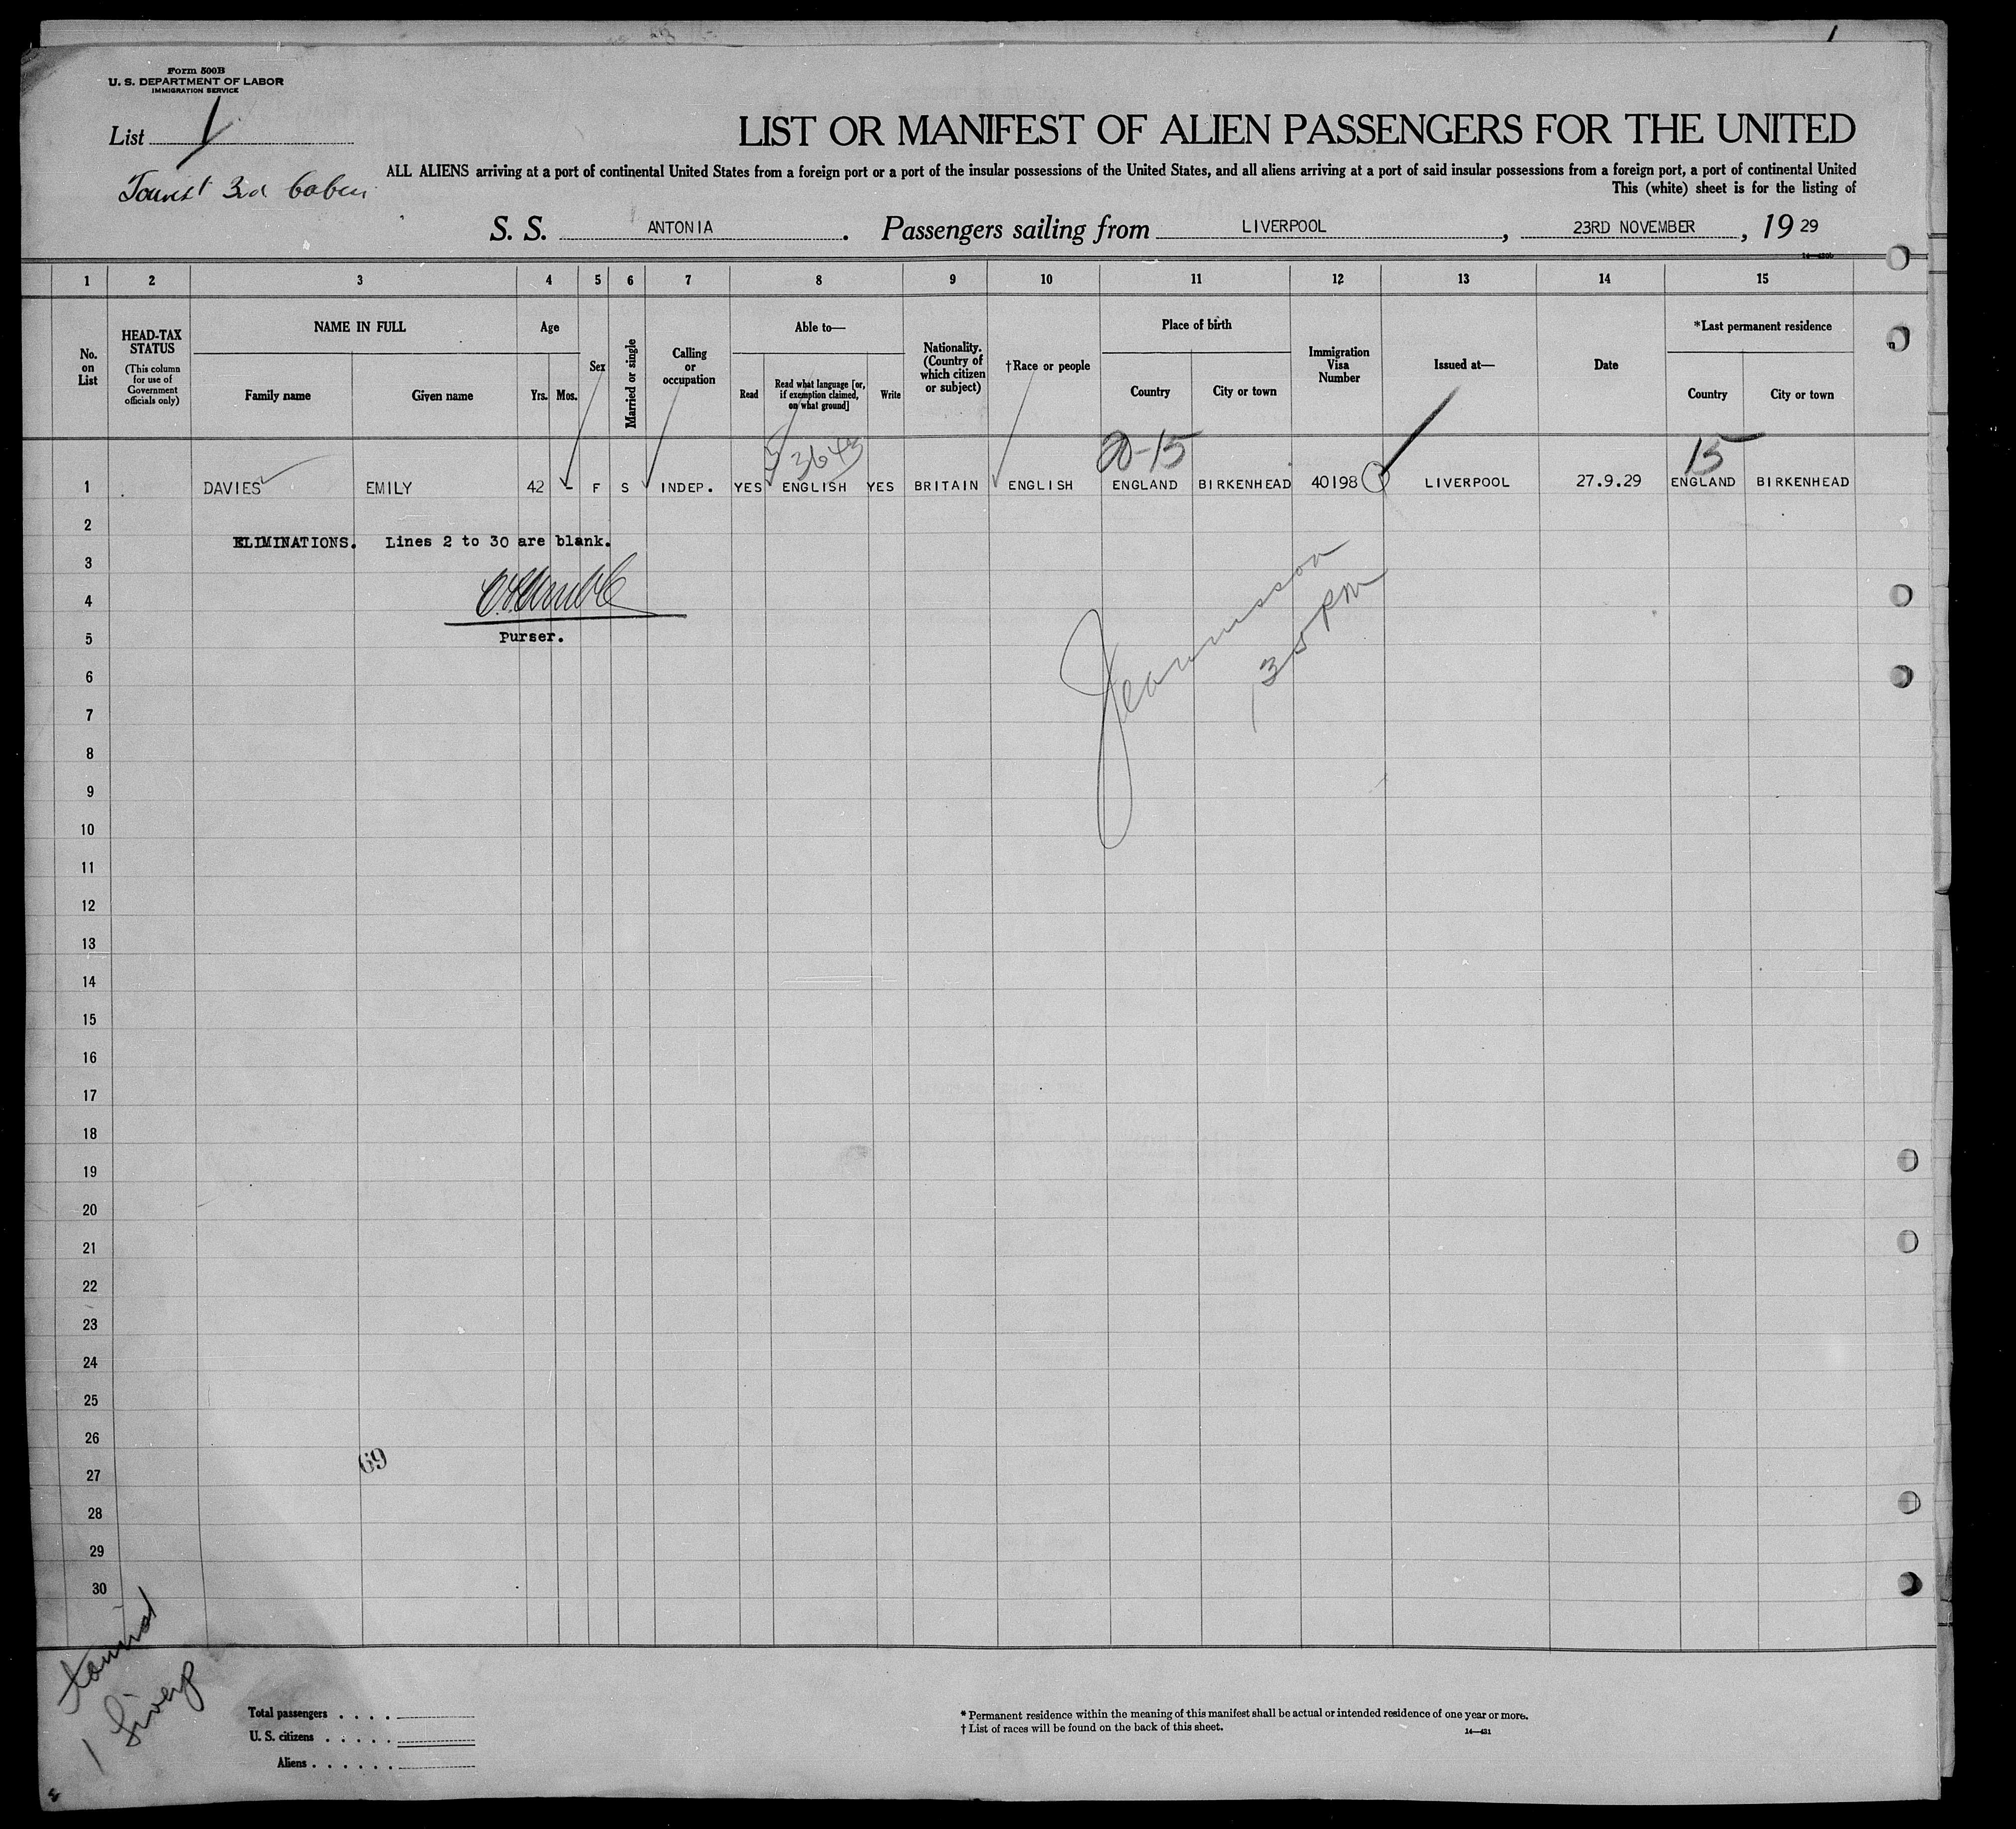 1
Form 500B
U. S. DEPARTMENT OF LABOR
IMMIGRATION SERVICE
List 1
Tourist 3rd Cabin
LIST OR MANIFEST OF ALIEN PASSENGERS FOR THE UNITED
ALL ALIENS arriving at a port of continental United States from a foreign port or a port of the insular possessions of the United States, and all aliens arriving at a port of said insular possessions from a foreign port, a port of continental United
This (white) sheet is for the listing of
S. S. ANTONIA. Passengers sailing from LIVERPOOL, 23RD NOVEMBER, 19 29
14—430b
1 2 3 4 5 6 7 8 9 10 11 12 13 14 15
No. on List
HEAD-TAX STATUS (This column for use of Government officials only)
NAME IN FULL
Family name Given name
Age
Yrs. Mos.
Sex
Married or single
Calling or occupation
Able to—
Read Read what language [or, if exemption claimed, on what ground] Write
Nationality. (Country of which citizen or subject)
†Race or people
Place of birth
Country City or town
Immigration Visa Number
Issued at—
Date
*Last permanent residence
Country City or town
3643 20-15 15
1 DAVIES EMILY 42 - F S INDEP. YES ENGLISH YES BRITAIN ENGLISH ENGLAND BIRKENHEAD 40198 LIVERPOOL 27.9.29 ENGLAND BIRKENHEAD
2
ELIMINATIONS. Lines 2 to 30 are blank.
3
4
5
Purser.
130 PM
6
7
8
9
10
11
12
13
14
15
16
17
18
19
20
21
22
23
24
25
26
69
27
28
29
30
tourist
1 Liverp
Total passengers . . . .
U. S. citizens . . . . .
Aliens . . . . . .
* Permanent residence within the meaning of this manifest shall be actual or intended residence of one year or more.
† List of races will be found on the back of this sheet.
14—431